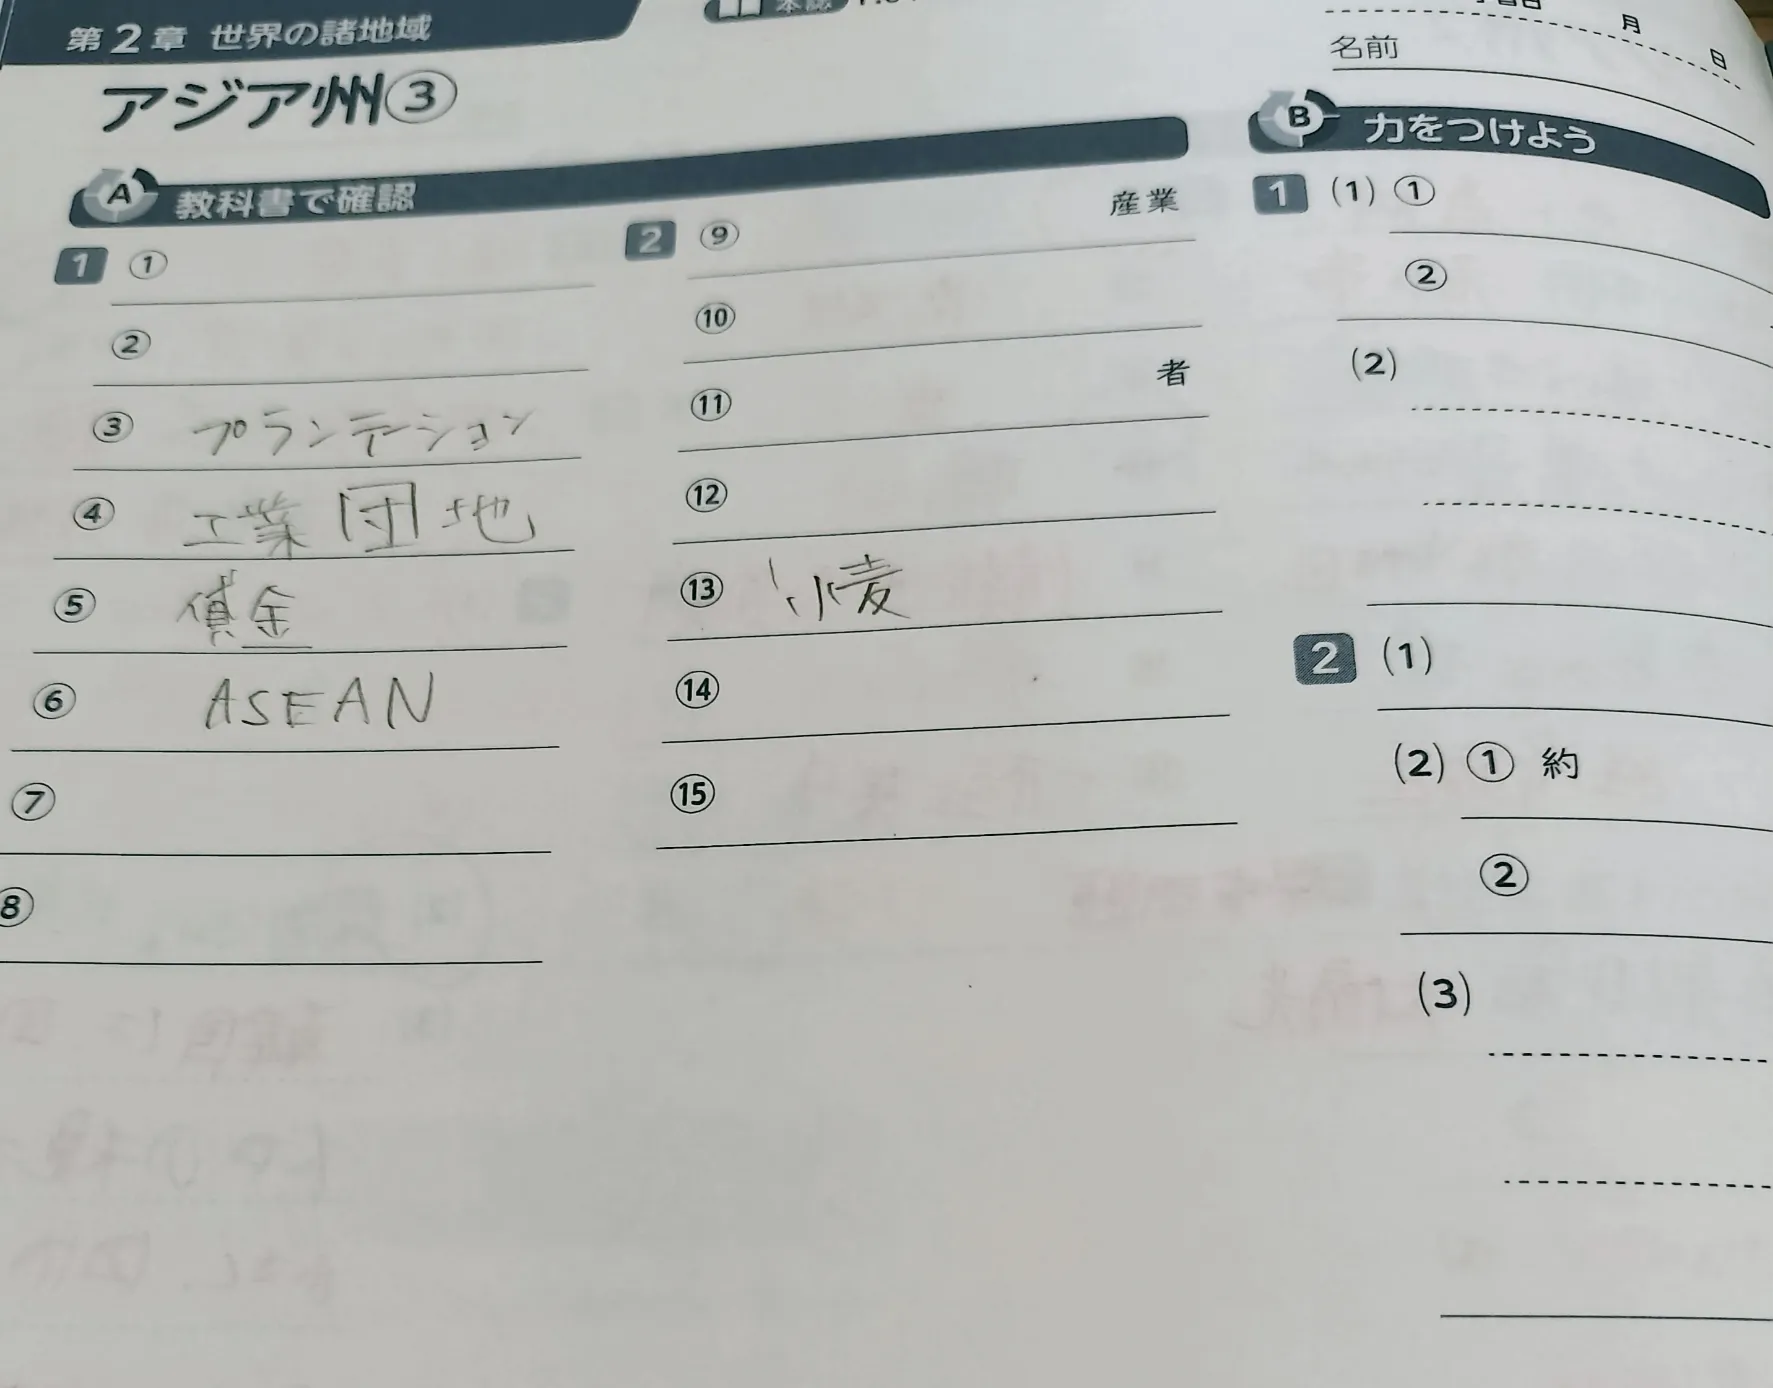 第2章 世界の諸地域
本誌
月
日
名前
アジア州③
A 教科書で確認
1 ①
②
③ プランテーション
④ 工業団地
⑤ 賃金
⑥ ASEAN
⑦
⑧
2 ⑨ 産業
⑩
⑪ 者
⑫
⑬ 小麦
⑭
⑮
B 力をつけよう
1 (1) ①
②
(2)
2 (1)
(2) ① 約
②
(3)